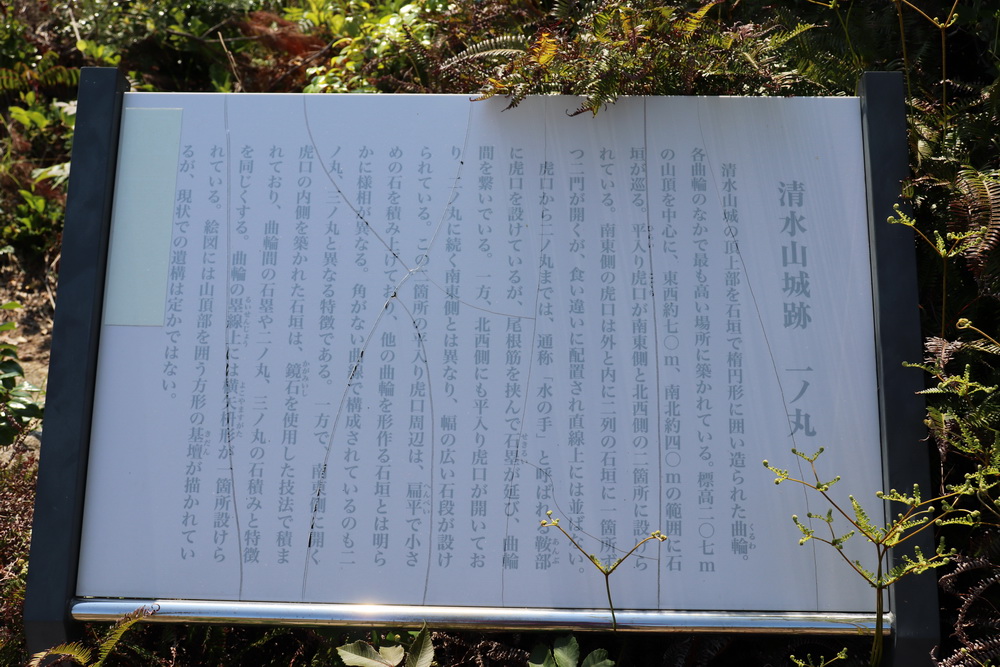 清水山城跡 一ノ丸
清水山城の頂上部を石垣で楕円形に囲い造られた曲輪。
各曲輪のなかで最も高い場所に築かれている。標高二〇七m
の山頂を中心に、東西約七〇m、南北約四〇mの範囲に石
垣が巡る。平入り虎口が南東側と北西側の二箇所に設けら
れている。南東側の虎口は外と内に二列の石垣に一箇所ず
つ二門が開くが、食い違いに配置され直線上には並ばない。
虎口から二ノ丸までは、通称「水の手」と呼ばれ、鞍部
に虎口を設けているが、尾根筋を挟んで石塁が延び、曲輪
間を繋いでいる。一方、北西側にも平入り虎口が開いてお
り、二ノ丸に続く南東側とは異なり、幅の広い石段が設け
られている。この二箇所の平入り虎口周辺は、扁平で小さ
めの石を積み上げており、他の曲輪を形作る石垣とは明ら
かに様相が異なる。角がない曲線で構成されているのも二
ノ丸、三ノ丸と異なる特徴である。一方で、南東側に開く
虎口の内側を築かれた石垣は、鏡石を使用した技法で積ま
れており、曲輪間の石塁や二ノ丸、三ノ丸の石積みと特徴
を同じくする。曲輪の塁線上には横矢枡形が一箇所設けら
れている。絵図には山頂部を囲う方形の基壇が描かれてい
るが、現状での遺構は定かではない。